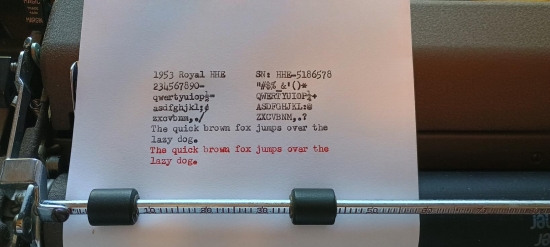 1953 Royal HHE SN: HHE-5186578
234567890- "#$%_&'()*
qwertyuiop½= QWERTYUIOP¼+
asdfghjkl;¢ ASDFGHJKL:@
zxcvbnm,./ ZXCVBNM,.?
The quick brown fox jumps over the
lazy dog.
The quick brown fox jumps over the
lazy dog.